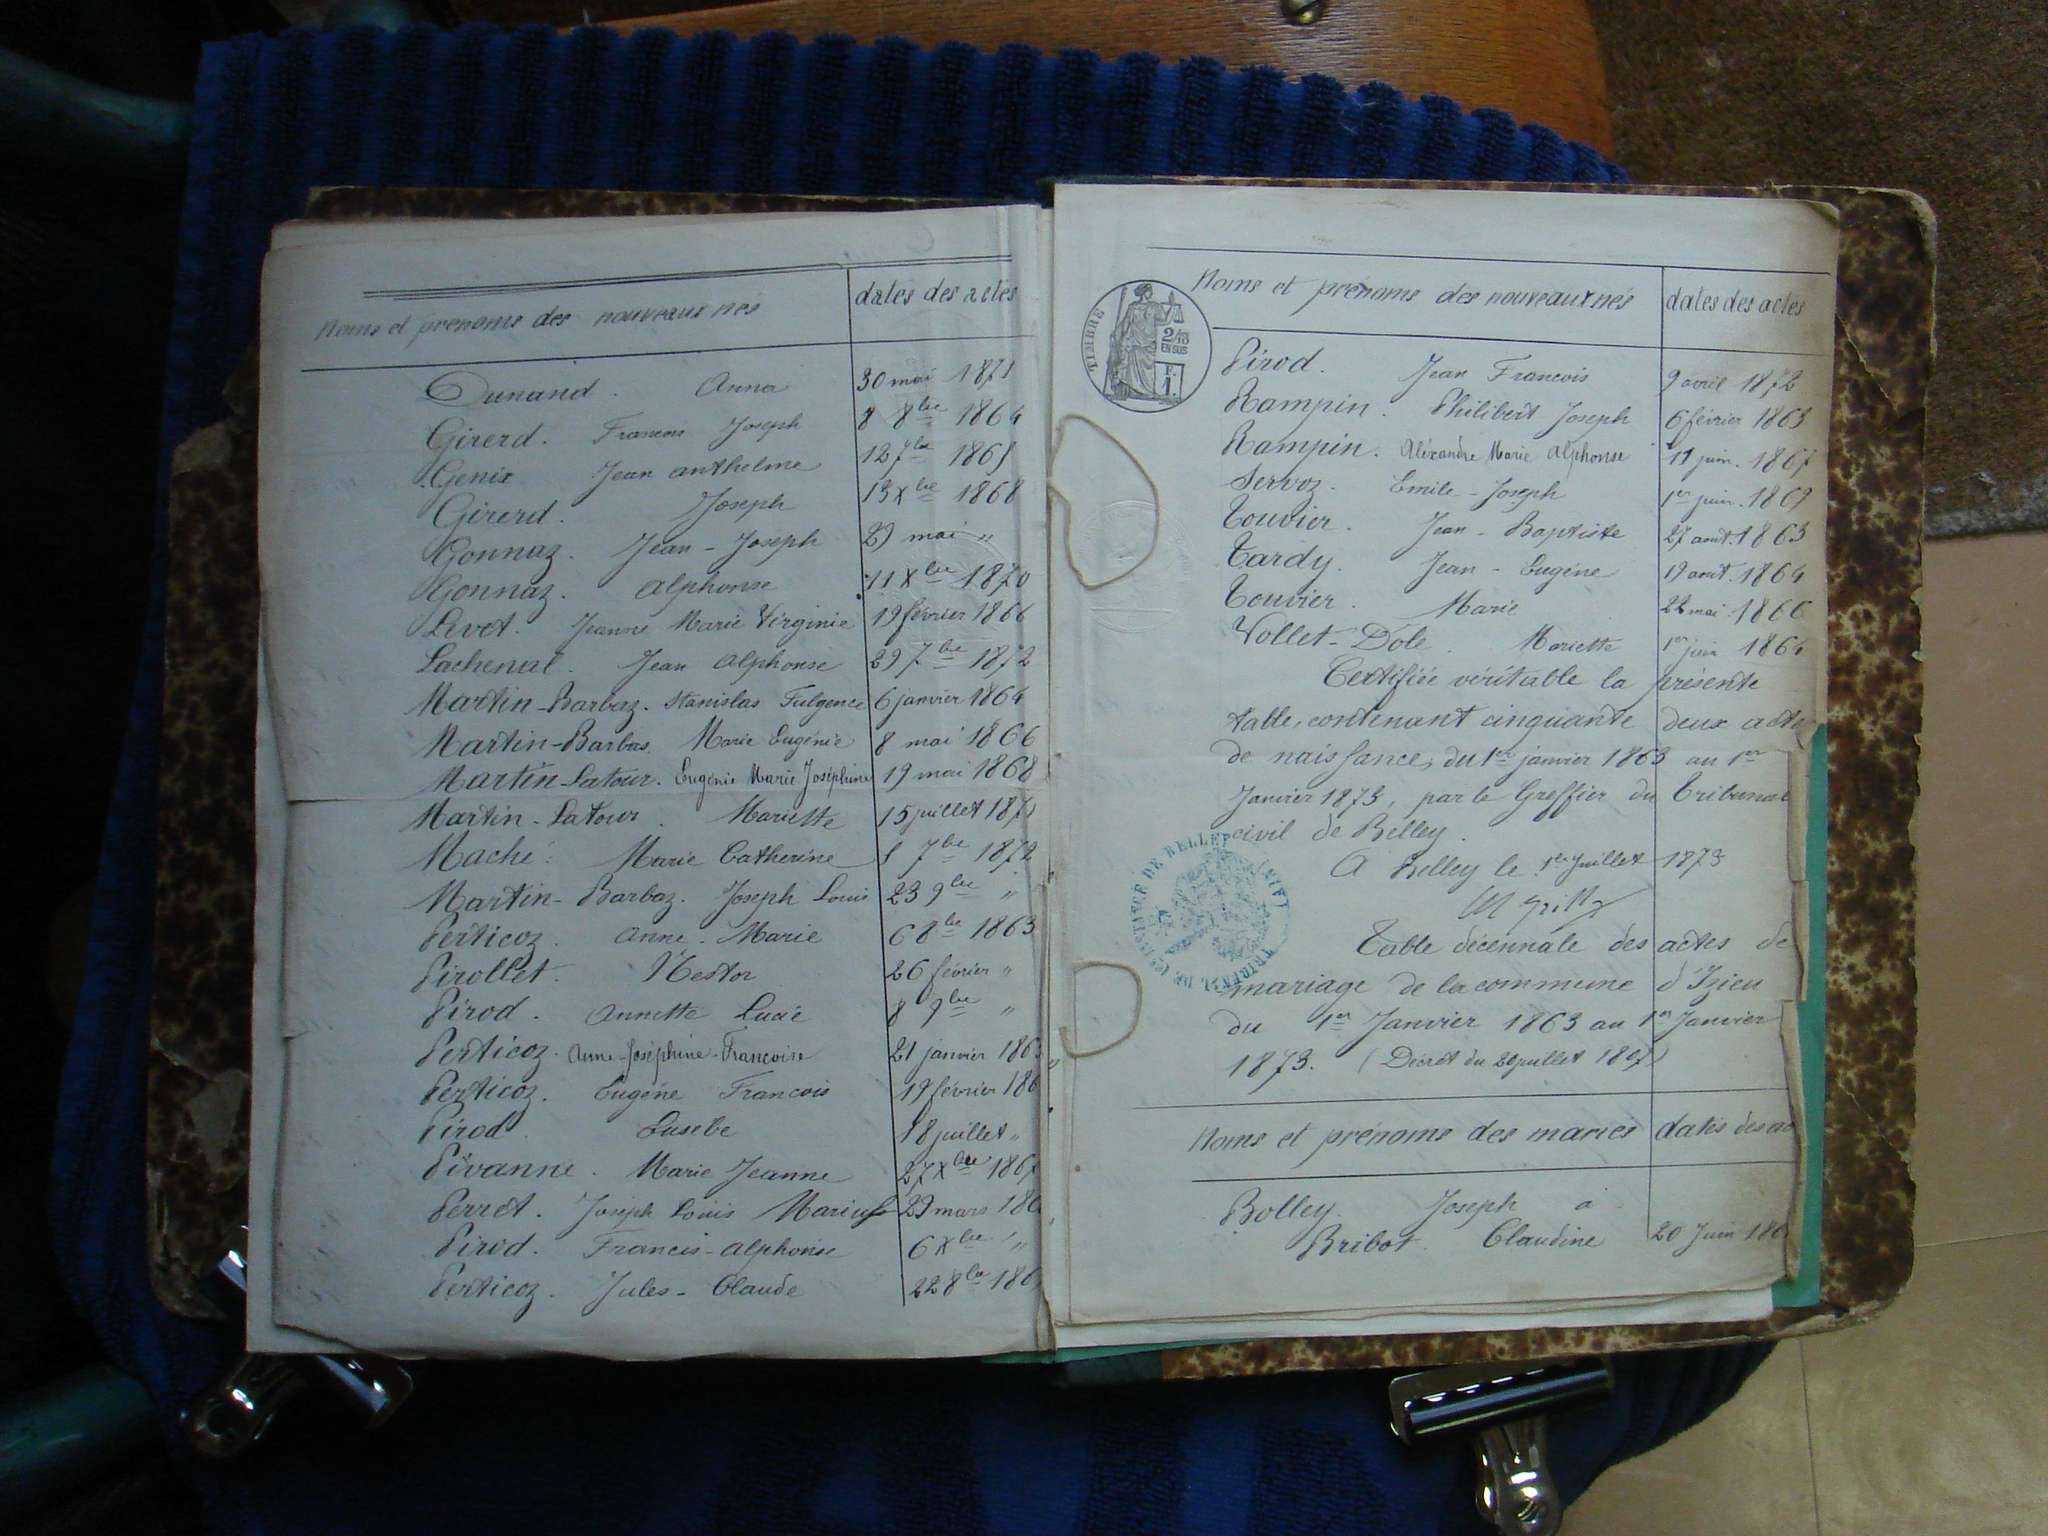 Noms et prénoms des nouveaux nés dates des actes
Dunand. Anna 30 mai 1871
Girerd. Francois Joseph 8 8bre 1864
Genix Jean anthelme 12 7bre 1865
Girerd. Joseph 13 Xbre 1868
Gonnaz. Jean-Joseph 29 mai "
Gonnaz. Alphonse 11 Xbre 1870
Levet. Jeanne Marie Virginie 19 février 1866
Lachenal. Jean Alphonse 29 7bre 1872
Martin-Barbaz. Stanislas Fulgence 6 janvier 1864
Martin-Barbas. Marie Eugénie 8 mai 1866
Martin-Latour. Eugénie Marie Joséphine 19 mai 1868
Martin-Latour. Mariette 15 juillet 1871
Maché. Marie Catherine 7bre 1872
Martin-Barbaz. Joseph Louis 23 9bre "
Perticoz. Anne-Marie 6 8bre 1863
Pirollet. Nestor 26 février "
Pirod. Annette Lucie 8 9bre "
Perticoz. Anne-Joséphine-Francoise 21 janvier
Perticoz. Eugéne Francois 19 février
Pirod. Eusebe 18 juillet "
Pivanne. Marie Jeanne 27 Xbre
Perret. Joseph Louis Marius 29 mars
Pirod. Francis-Alphonse 6 Xbre "
Perticoz. Jules-Claude 22 8bre
TIMBRE
2/10
EN SUS
F.
1.
Noms et prénoms des nouveaux nés dates des actes
Pirod. Jean Francois 9 avril 1872
Rampin. Philibert Joseph 6 février 1863
Rampin. Aléxandre Marie Alphonse 11 juin. 1867
Servoz. Emile-Joseph 1er juin. 1869
Touvier. Jean-Baptiste 27 août. 1863
Tardy. Jean-Eugéne 19 août. 1864
Touvier. Marie 22 mai. 1866
Vollet-Dole. Mariette 1er juin 1864
Certifiée véritable la présente
table, contenant cinquante deux actes
de naissance, du 1er janvier 1863 au 1er
Janvier 1873, par le Greffier du Tribunal
civil de Belley.
A Belley le 1er Juillet 1873
TRIBUNAL DE 1re INSTANCE DE BELLEY (AIN)
Table décennale des actes de
mariage de la commune d'Izieu
du 1er Janvier 1863 au 1er Janvier
1873. (Décret du 20 juillet 1807)
Noms et prénoms des mariés dates des ac
Bolley. Joseph à
Bribot. Claudine 20 Juin